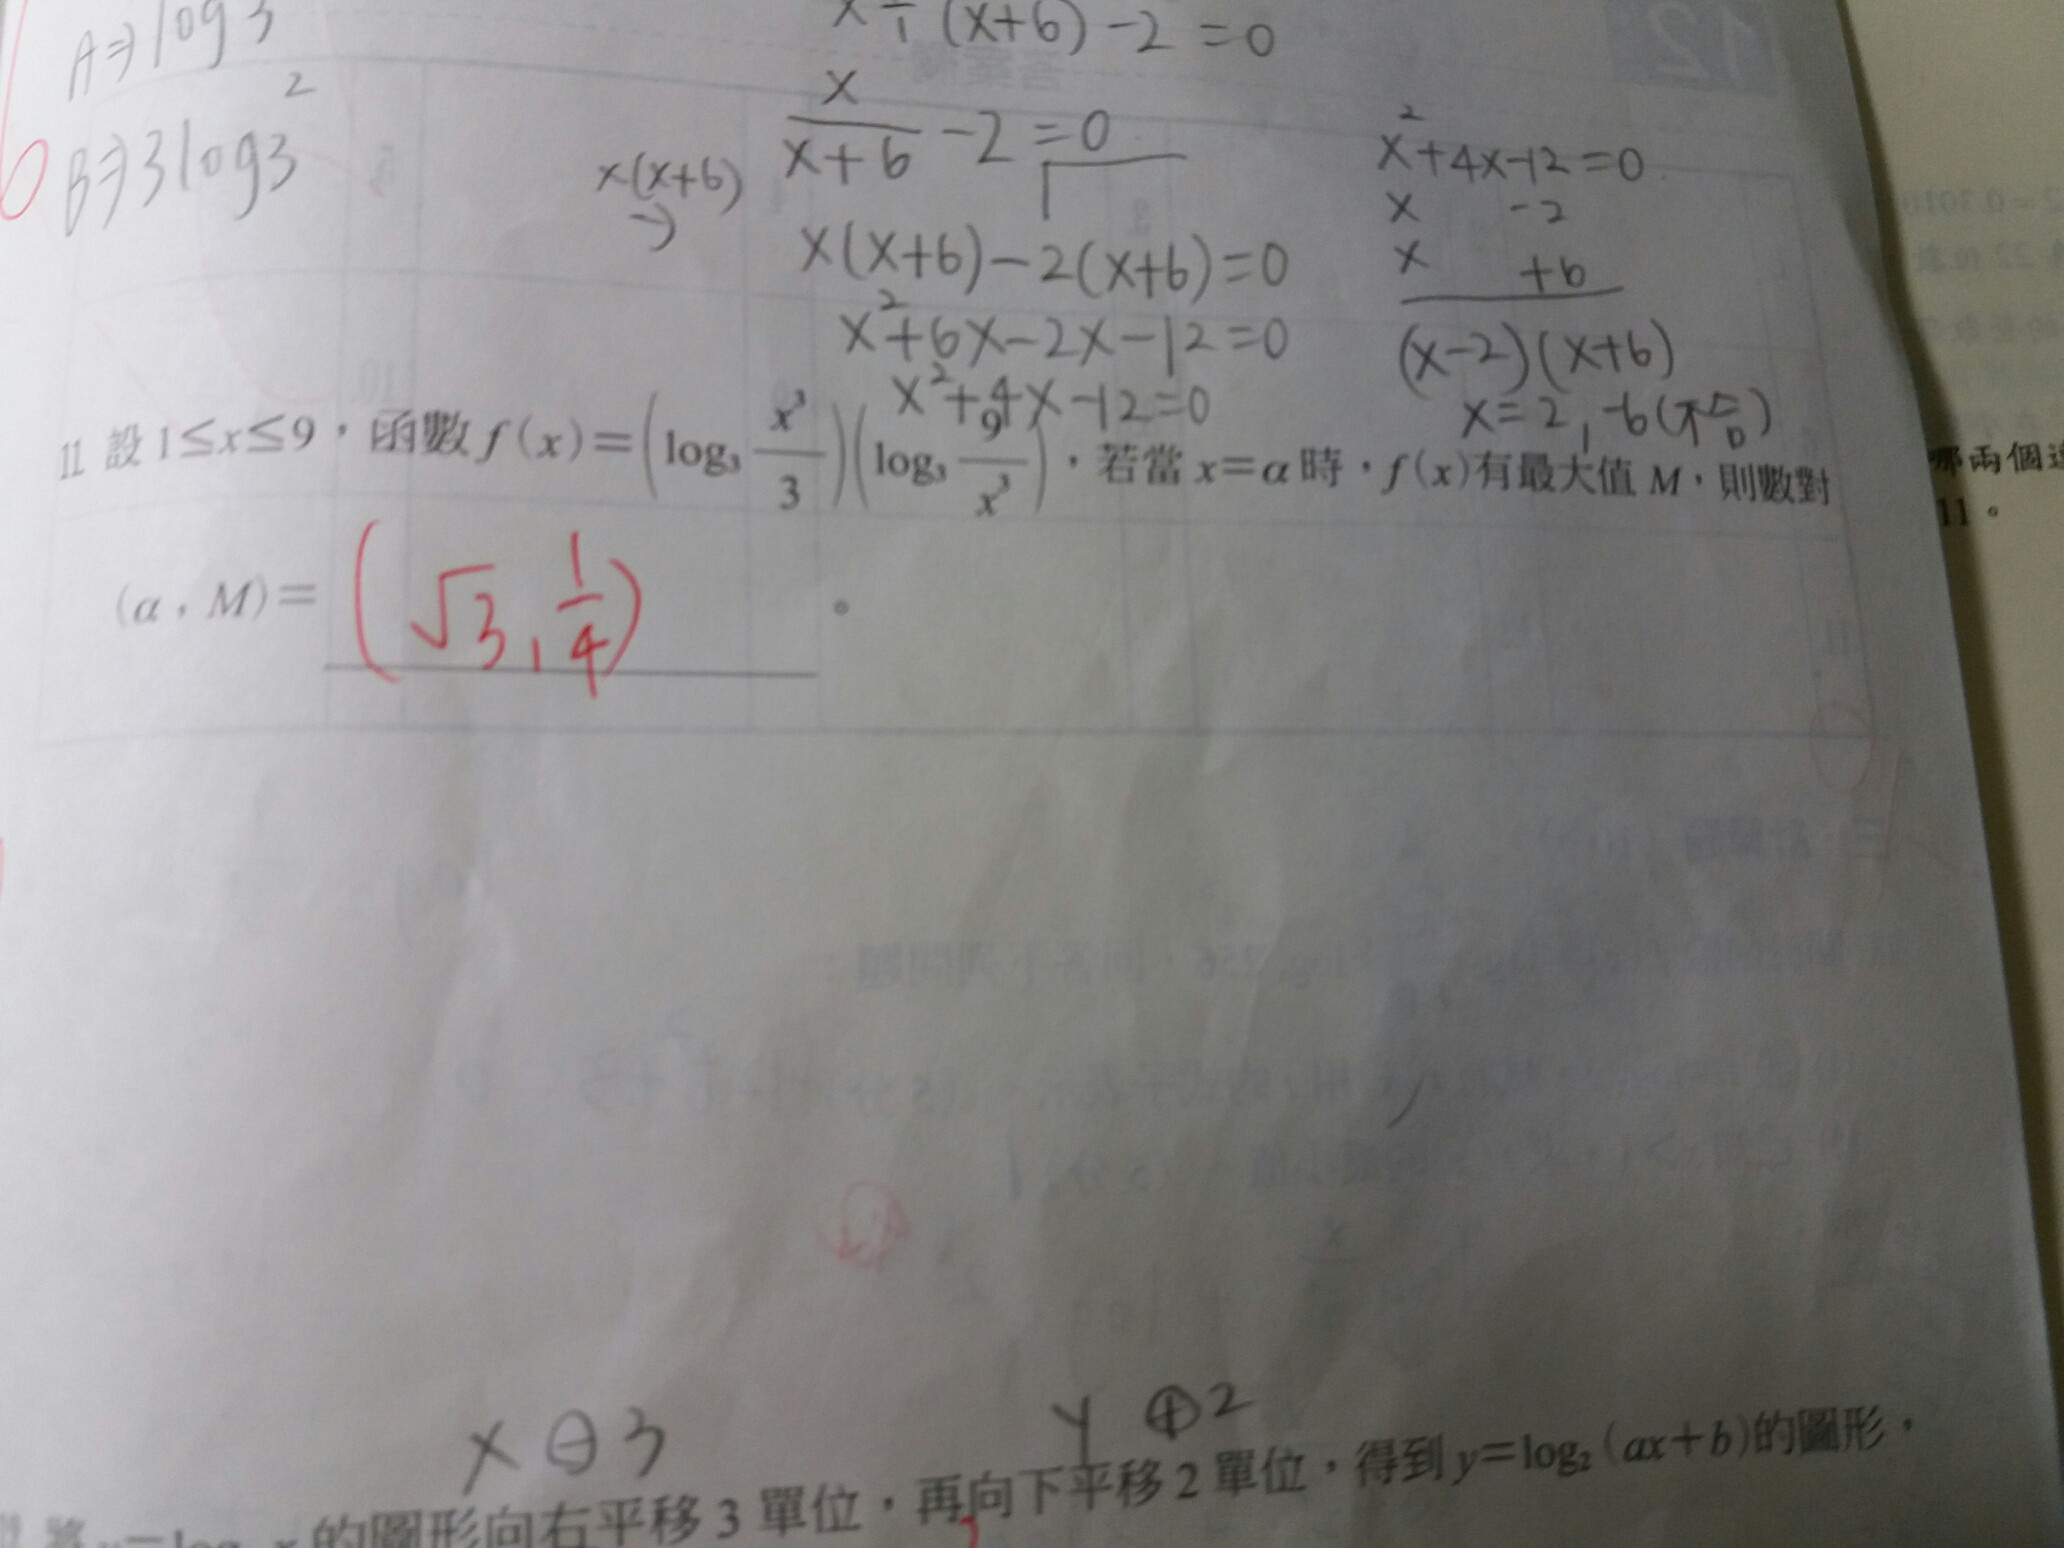 A⇒log3
2
B⇒3log3
x÷(x+6)-2=0
x/(x+6) -2=0
x(x+6)
→
x(x+6)-2(x+6)=0
x²+6x-2x-12=0
x²+4x-12=0
x²+4x-12=0
x -2
x +6
(x-2)(x+6)
x=2,-6(不合)
11. 設 1≤x≤9,函數 f(x)=(log₃ x³/3)(log₃ 9/x³),若當 x=α 時,f(x)有最大值 M,則數對
(α,M)= (√3, 1/4) 。
哪兩個連
11。
x⊖3
y⊕2
的圖形向右平移 3 單位,再向下平移 2 單位,得到 y=log₂(ax+b)的圖形,